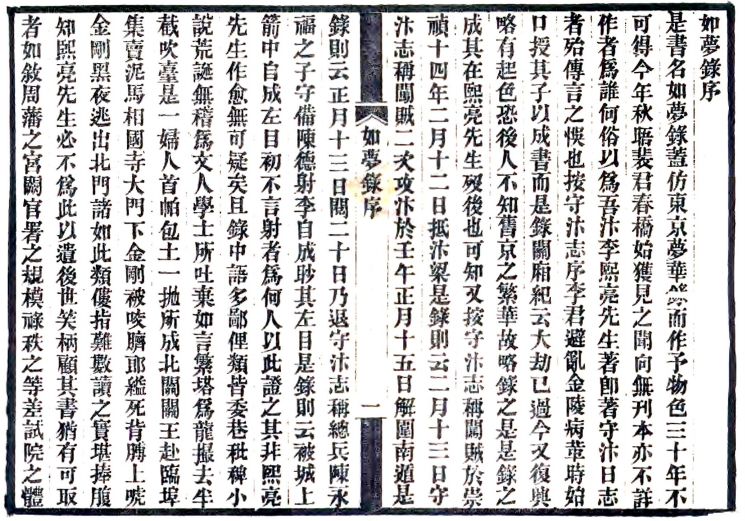 如夢錄序
是書名如夢錄蓋仿東京夢華錄而作予物色三十年不
可得今年秋晤裴君春橋始獲見之聞向無刊本亦不詳
作者爲誰何俗以爲吾汴李熙亮先生著卽著守汴日志
者殆傳言之悞也按守汴志序李君避亂金陵病革時始
口授其子以成書而是錄關廂紀云大劫已過今又復興
略有起色恐後人不知舊京之繁華故略錄之是是錄之
成其在熙亮先生歿後也可知又按守汴志稱闖賊於崇
禎十四年二月十二日抵汴梁是錄則云二月十三日守
汴志稱闖賊二次攻汴於壬午正月十五日解圍南遁是
如夢錄序
一
錄則云正月十三日關二十日乃退守汴志稱總兵陳永
福之子守備陳德射李自成眇其左目是錄則云被城上
箭中自成左目初不言射者爲何人以此證之其非熙亮
先生作愈無可疑矣且錄中語多鄙俚類皆委巷秕稗小
說荒誕無稽爲文人學士所吐棄如言繁塔爲龍撮去半
截吹臺是一婦人首帕包土一拋所成北關關王赴臨埠
集賣泥馬相國寺大門下金剛被咬臍郎縊死背膊上唬
金剛黑夜逃出北門諸如此類僂指難數讀之實堪捧腹
知熙亮先生必不爲此以遺後世笑柄顧其書猶有可取
者如敘周藩之宮闕官署之規模祿秩之等差試院之體